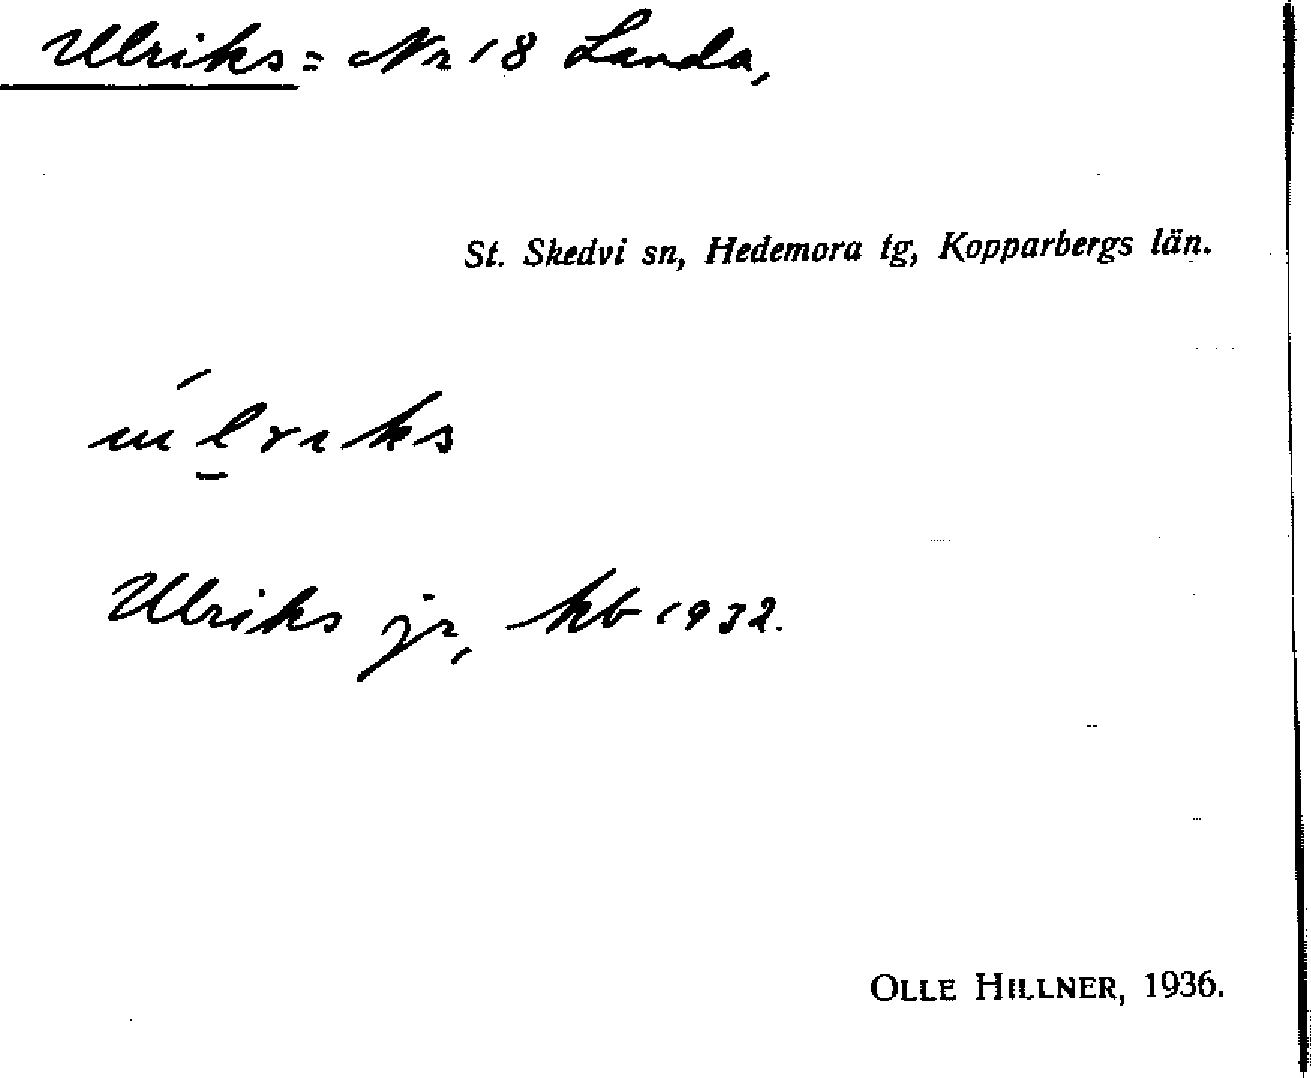 Ulriks = Nr 18 Landa,
St. Skedvi sn, Hedemora tg, Kopparbergs län.
úl̠rıks
Ulriks jr, kb 1932.
OLLE HILLNER, 1936.